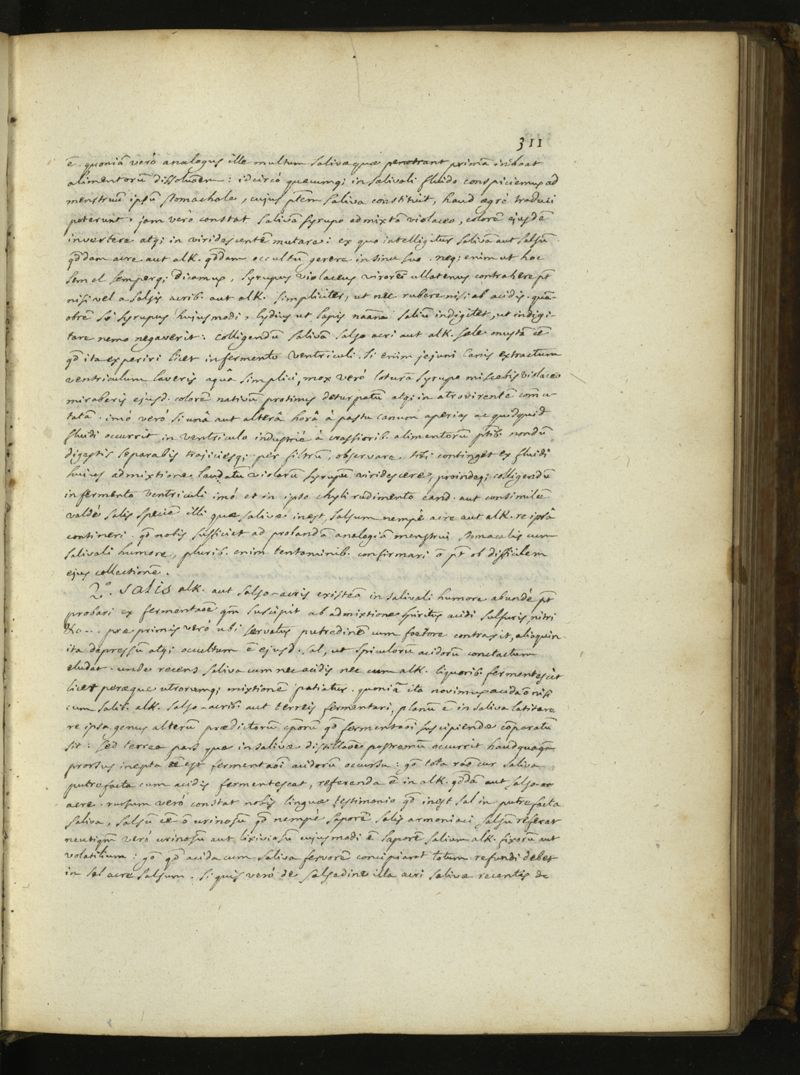 311
ē. quoniā verò analogus ille multum salivæ quæ penetrant primā inhoat
alimentorū dissolutōem : idcircò quæcumq; in salivali fluido conspiciemus ad
menstruū ipsū stomachale, cujus ptem saliva constituit, haud ægrè traduci
poterunt. jam verò constat salivā syrupo admixtā violaceo, colorē ejusdē
invertere atq; in viridescentē mutare : ex quo intelligitur salivā aut salsū
qddam acre aut alk. qddam occultū gerere in sinu suo. neq; enim ut hoc
semel semperq; dicamus, syrupus violaceus virorē ullatenus contrahere pt
nisi vel a salsis acrib. aut alk. simpliciter, ut nec rubere nisi ab acidis. quā
obrē sō syrupus hujusmodi, lydius ut lapis naām saliū indigitet, ut indigi
tare nemo negaverit : colligendū salivā salso acri aut alk. sale
qd ita experiri licet in fermento ventriculi. Si enim jejuni canis extractum
ventriculum laveris aquâ simplici, mox verò loturā syrupo miscebis violaceo
miraberis ejusd. colorē nativū protinus deturpatū atq; in atrovirentē com̄u
tatū. imò verò si unâ aut alterâ horâ à pastu canum aperias ac quidquid
fluidi occurrit in ventriculo industriè à crassiorib. alimentorū ptib. nondū
digestis separabis trajiciesq; per filtrū, observare tibi continget ex fluidi
hujus admixtione laudatū violarū syrupū viridescere, proindeq; colligendū
in fermento ventriculi imò et in ipso chyli rudimento eand. aut consimilem
valdè salis speciē illi quæ salivæ inest, salsum nempè acre aut alk. re ipsâ
contineri. qd nobis sufficiet ad probandā analogiā menstrui stomacalis cum
salivali humore, plurib. enim tentaminib. confirmari ō pt ob difficilem
ejus collectionē.
2º. Salis alk. aut salso-acris existēa in salivali humore abundè pt
probari ex fermentaōe qm suscipit ab admixtione spiritus acidi sulfuris, nitri
&c... præprimis verò ubi servatus putredinē cum fœtore contraxit, alioquin
ita depressū atq; occultum ē ejusd. sal, ut spiculorū acidorū contactum
eludat. unde recens saliva cum nec acidis nec cum alk. liquorib. fermentescit
licet peræque utrorumq; mixtionē patiatur. quoniā ita novimus acida ō nisi
cum salib. alk. salso-acrib. aut terreis fermentari, planū ē in saliva latitare
re ipsa genus alterū prædictorū cporū qd fermentaōi suscipiendæ cōparatū
sit : sed terrea pars quæ in salivæ distillaōe postremū occurrit haudquaqm
prorsus inepta est fermentaōi acidorū occursu : gō tota rāo cur saliva
putrefacta cum acidis fermentescat, referenda ē in alk. qddā aut salso-
acre. rursum verò constat nobis linguæ testimonio qd inest sal in putrefacta
saliva, salsū eē ō urinosū qd nempè saporē salis armoniaci salsū referat
neutiqm verò urinosū aut lixiviosū cujusmodi ē saporē salium alk. fixorū aut
volatilium : gō qd acida cum saliva fervorē concipiant totum refundi debet
in sal acre salsum. Si quis verò de salsedine illa acri salivæ recentis de